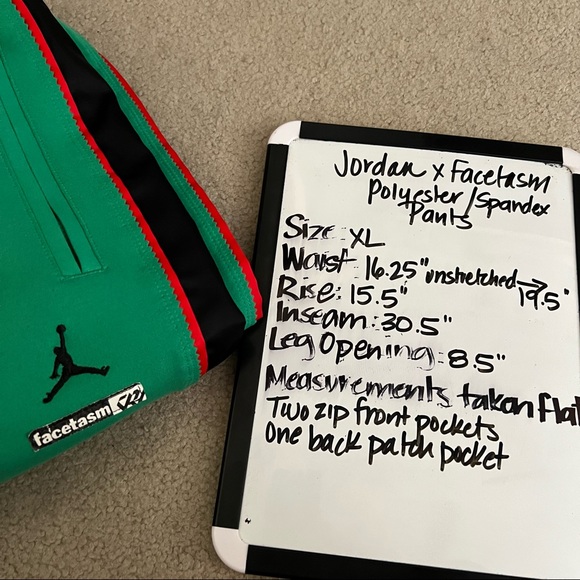 facetasm
Jordan x Facetasm
Polyester/Spandex
Pants
Size: XL
Waist: 16.25" unstretched → 19.5"
Rise: 15.5"
Inseam: 30.5"
Leg Opening: 8.5"
Measurements taken flat
Two zip front pockets
One back patch pocket